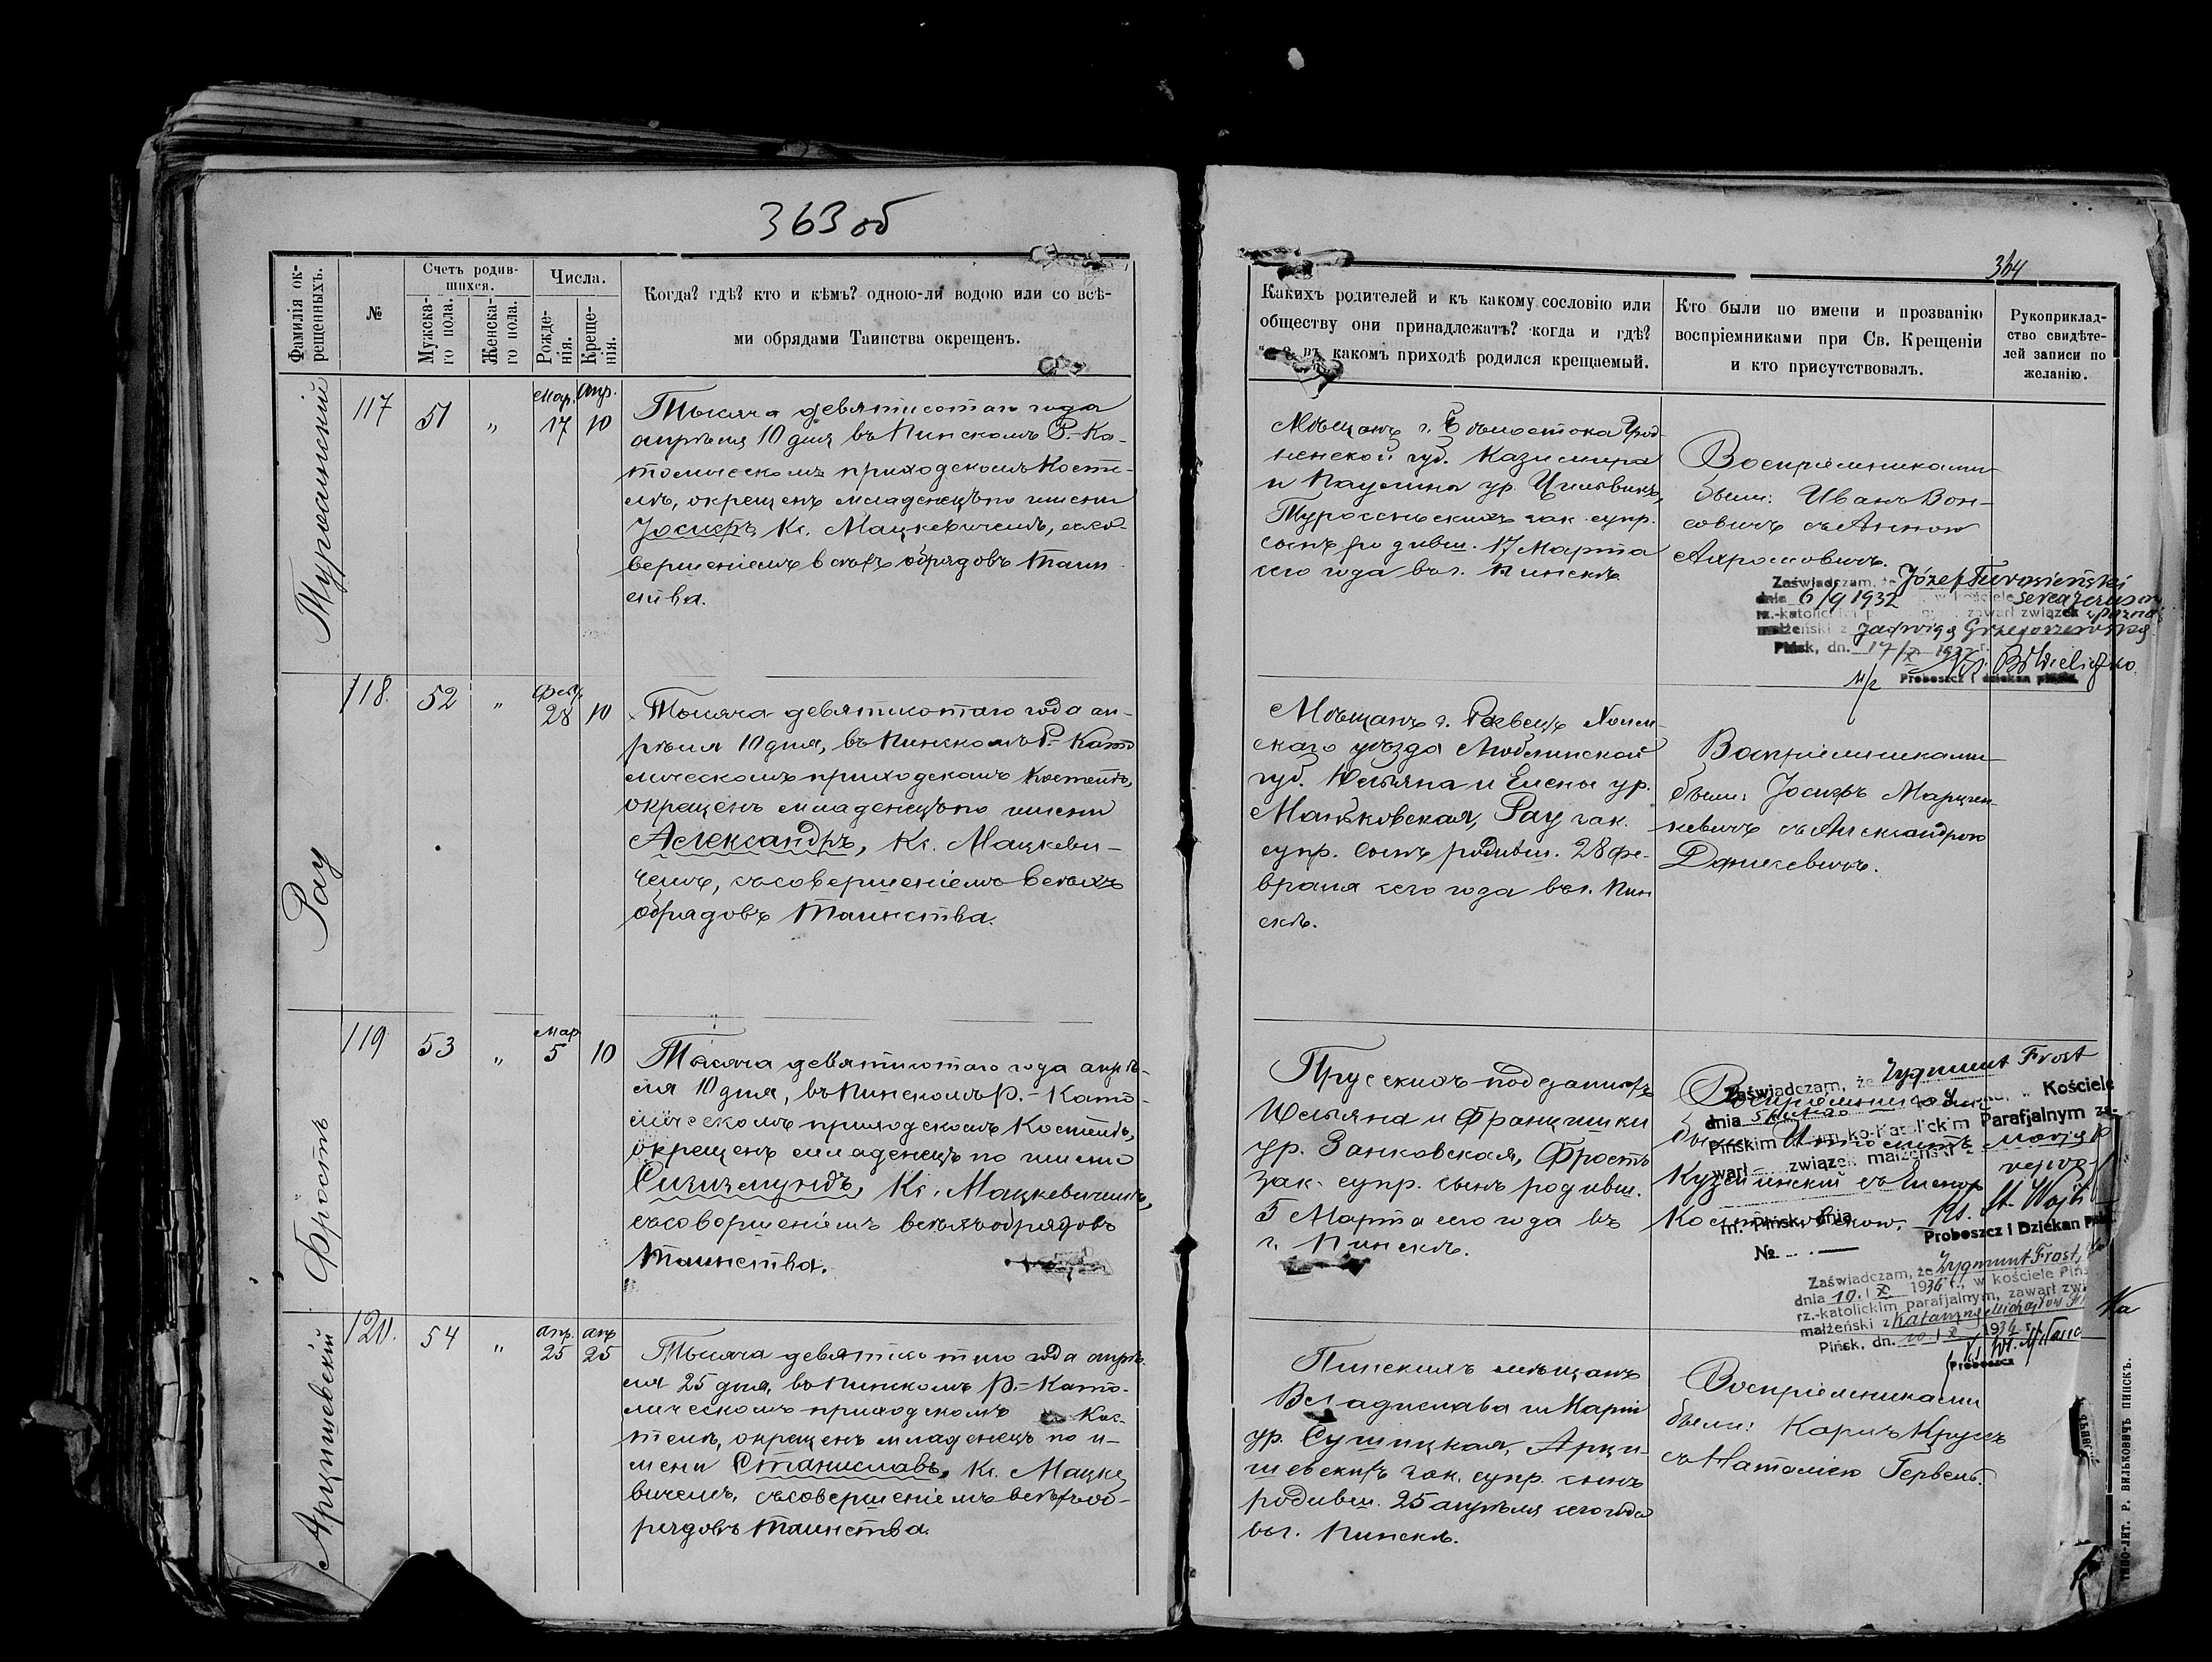 363 об
Фамилія ок-
рещенныхъ.
№
Счетъ родив-
шихся.
Мужска-
го пола.
Женска-
го пола.
Числа.
Рожде-
нія.
Креще-
нія.
Когда? гдѣ? кто и кѣмъ? одною-ли водою или со всѣ-
ми обрядами Таинства окрещенъ.
117
51
"
Мар.
17
Апр.
10
Тысяча девятисотаго года
апрѣля 10 дня въ Пинскомъ Р.-Ка-
толическомъ приходскомъ Косте-
лѣ, окрещенъ младенецъ по имени
Іосифъ, Кс. Мацкевичемъ, съ со-
вершеніемъ всѣхъ обрядовъ Таин-
ства.
Рау
118.
52
"
Фев.
28
10
Тысяча девятисотаго года ап-
рѣля 10 дня, въ Пинскомъ Р.-Като
лическомъ приходскомъ Костелѣ,
окрещенъ младенецъ по имени
Александръ, Кс. Мацкеви-
чемъ, съ совершеніемъ всѣхъ
обрядовъ Таинства.
Фростъ
119
53
"
Мар
5
10
Тысяча девятисотаго года апрѣ-
ля 10 дня, въ Пинскомъ Р.-Като-
лическомъ приходскомъ Костелѣ,
окрещенъ младенецъ по имени
Сигизмундъ, Кс. Мацкевичемъ,
съ совершеніемъ всѣхъ обрядовъ
Таинства.
Арцишевскій
120.
54
"
Апр.
25
Апр
25
Тысяча девятисотаго года апрѣ-
ля 25 дня, въ Пинскомъ Р.-Като-
лическомъ приходскомъ Кос-
телѣ, окрещенъ младенецъ по и-
мени Станиславъ, Кс. Мацке
вичемъ, съ совершеніемъ всѣхъ об-
рядовъ Таинства.
364
Какихъ родителей и къ какому сословію или
обществу они принадлежатъ? когда и гдѣ?
въ какомъ приходѣ родился крещаемый.
Кто были по имени и прозванію
воспріемниками при Св. Крещеніи
и кто присутствовалъ.
Рукоприклад-
ство свидѣте-
лей записи по
желанію.
Мѣщанъ г. Бѣлостока Грод-
ненской губ. Казимира
и Паулины ур.
зак. супр.
сынъ родивш. 17 Марта
сего года въ г. Пинскѣ
Воспріемниками
были: Иванъ Вон-
совичъ съ Анною
Zaświadczam, że Józef Turosieński
dnia 6/9 1932 w kościele
rz.-katolickim zawarł związek
małżeński z Jadwigą Grzegorzewską
Pińsk, dn. 17/X 1932 r.
Proboszcz i dziekan piński
Мѣщанъ г. Холм-
скаго уѣзда Люблинской
губ. Юльяна и Елены ур.
Маньковская, Рау зак.
супр. сынъ родивш. 28 фе-
враля сего года въ г. Пин
скѣ.
Воспріемниками
были: Іосифъ Марцин-
кевичъ съ Александрою
Данкевичъ.
Прусскихъ подданныхъ
Юльяна и Францишки
ур. Занковская, Фростъ
зак. супр. сынъ родивш.
5 Марта сего года въ
г. Пинскѣ.
Воспріемниками
были
съ Еленою
Zaświadczam, że Zygmunt Frost
dnia w Kościele
Pińskim Rzymsko-Katolickim Parafjalnym za-
warł związek małżeński z
m. Pińsk, dnia
Ks. St.
Proboszcz i Dziekan
№
Zaświadczam, że Zygmunt Frost
dnia 10. X 1936 r., w kościele Piń
rz.-katolickim parafjalnym, zawarł zwi
małżeński z Katarzyną
Pińsk, dn. 10. X 1936 r.
Proboszcz
Пинскихъ мѣщанъ
Владислава и Маріи
ур. Сушицкая, Арци-
шевскихъ зак. супр. сынъ
родивш. 25 апрѣля сего года
въ г. Пинскѣ.
Воспріемниками
были: Карлъ Крузъ
съ Наталіею
ТИПО-ЛИТ. Р. ВИЛЬКОВИЧЪ ПИНСКЪ.